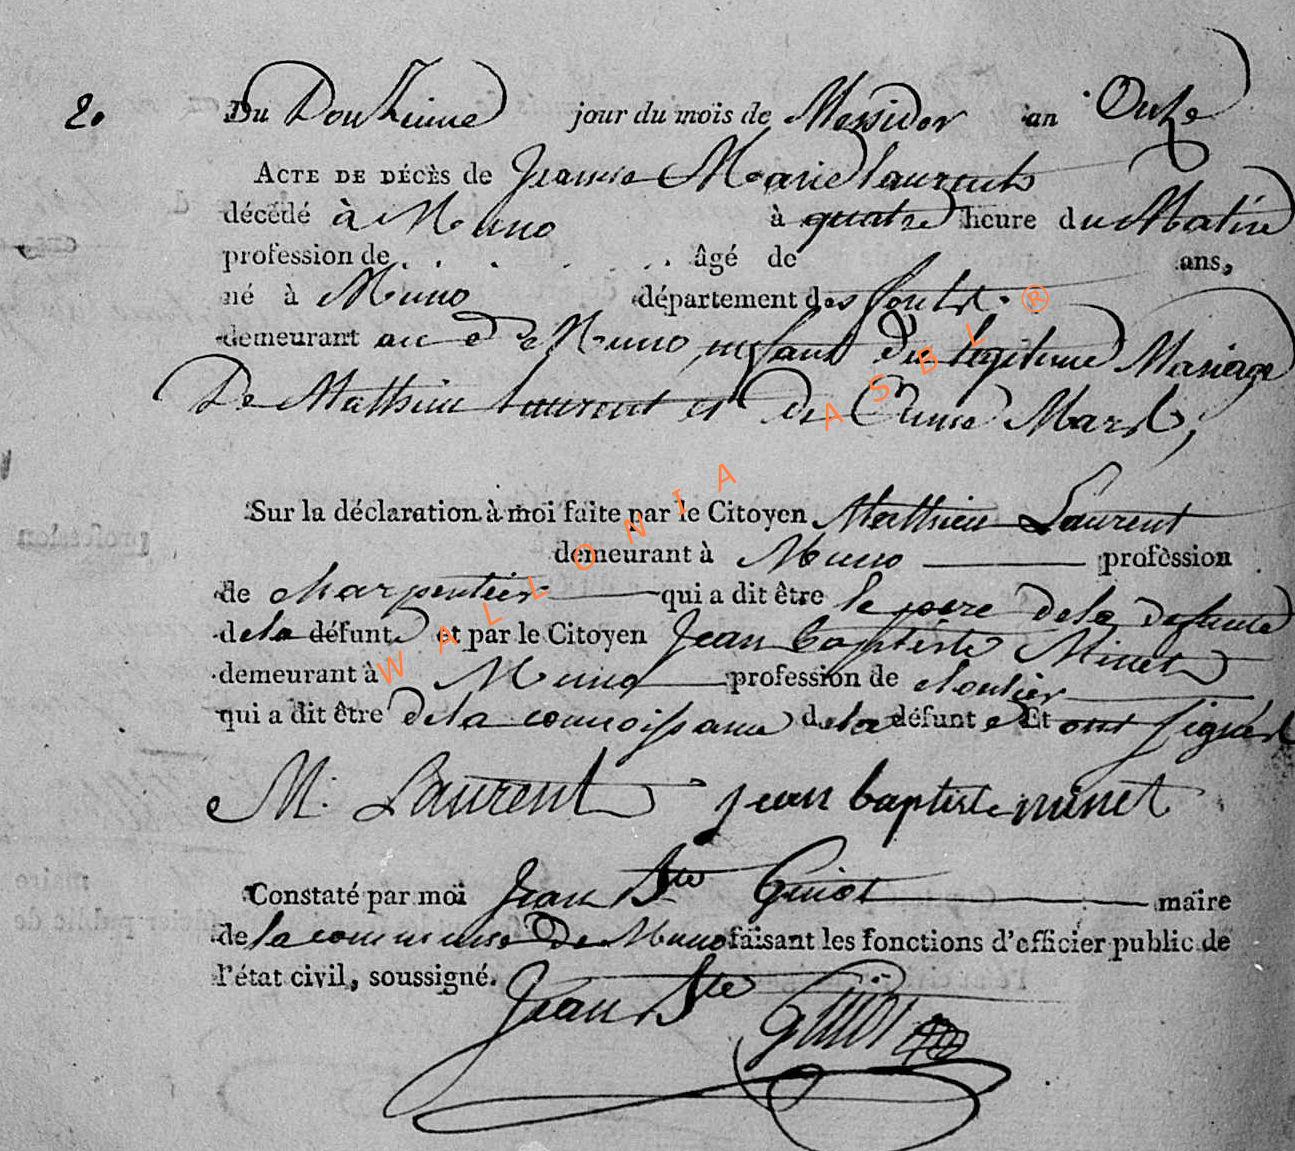 20 Du Douzieme jour du mois de Messidor an Onze
ACTE DE DÉCÈS de Jeanne Marie Laurents
décédé à Muno à quatre heure du Matin
profession de . . . . . . . âgé de ans,
né à Muno département des forêts.
demeurant au d de Muno enfant du legitime Mariage
De Mathieu Laurent et de
Sur la déclaration à moi faite par le Citoyen Mathieu Laurent
demeurant à Muno profession
de charpentier qui a dit être le pere dela defunte
dela défunte et par le Citoyen Jean baptiste Minet
demeurant à Muno profession de cloutier
qui a dit être dela connoissance dela défunte Et ont signés
M. Laurent jean baptiste minet
Constaté par moi Jean Bte Guiot maire
de la commune De Muno faisant les fonctions d'officier public de
l'état civil, soussigné. Jean Bte Guiot
WALLONIA ASBL ®